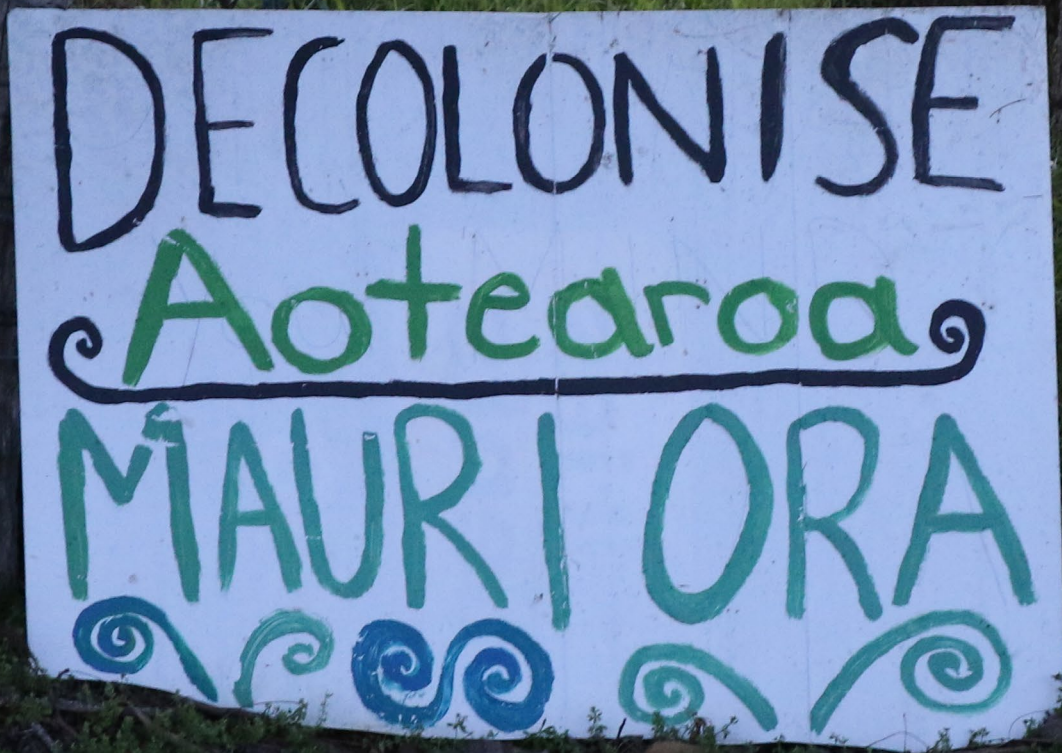 DECOLONISE
Aotearoa
MAURI ORA